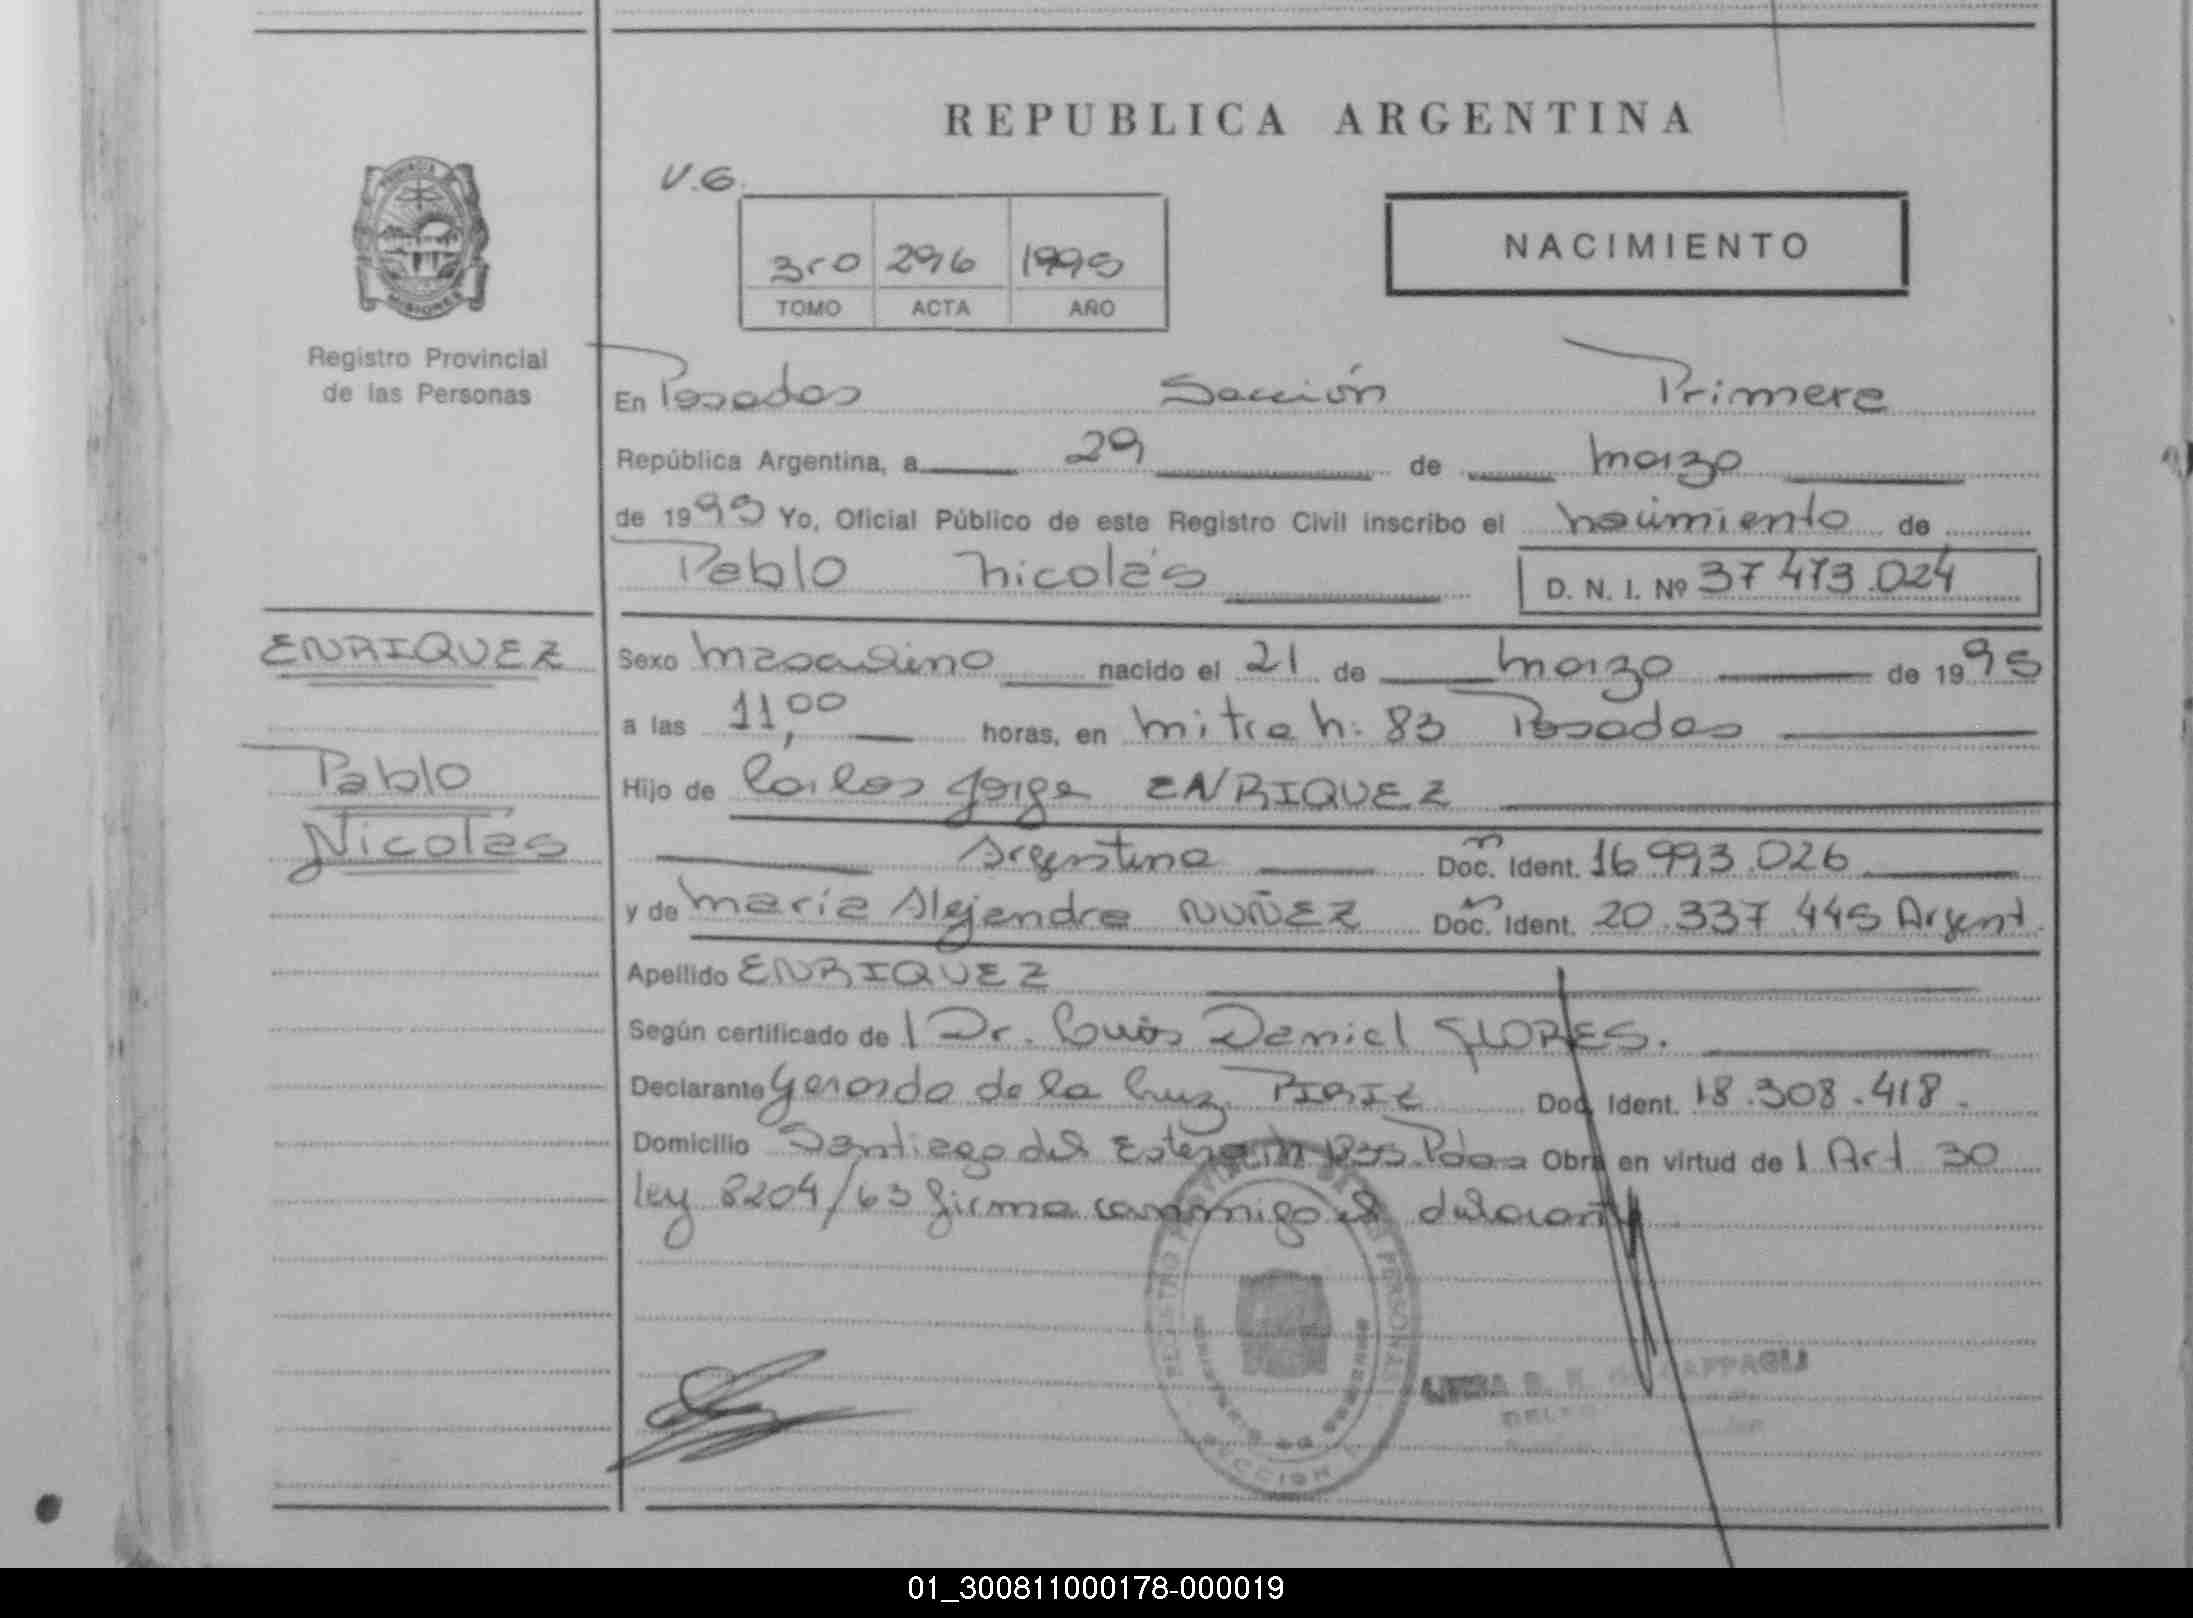 REPUBLICA ARGENTINA
V.G.
3ro 296 1995
TOMO ACTA AÑO
NACIMIENTO
PROVINCIA
MISIONES
Registro Provincial
de las Personas
En Posadas Sección Primera
República Argentina, a 29 de marzo
de 1995 Yo, Oficial Público de este Registro Civil inscribo el nacimiento de
Pablo Nicolás
D. N. I. Nº 37 473.024
ENRIQUEZ
Pablo
Nicolás
Sexo masculino nacido el 21 de marzo de 1995
a las 11,00 horas, en mitre n: 83 Posadas
Hijo de Carlos Jorge ENRIQUEZ
Argentino Doc. Ident. 16.993.026
y de maría Alejandra NUÑEZ Doc. Ident. 20.337 445 Argent.
Apellido ENRIQUEZ
Según certificado de l Dr. Luis Daniel FLORES.
Declarante Gerardo de la Cruz PIRIZ Doc. Ident. 18.308.418.
Domicilio Santiago del Estero Pdas Obra en virtud de l Art 30
ley 8204/63 firma conmigo el declarante
REGISTRO PERSONAS
MINISTERIO DE GOBIERNO
SECCION
CAPPAGLI
01_300811000178-000019